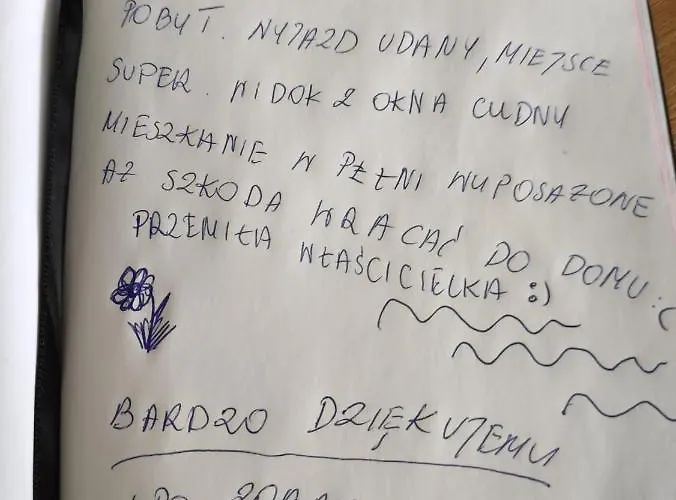 POBYT. WYJAZD UDANY, MIEJSCE
SUPER. WIDOK Z OKNA CUDNY
MIESZKANIE W PEŁNI WYPOSAŻONE
AŻ SZKODA WRACAĆ DO DOMU :(
PRZEMIŁA WŁAŚCICIELKA :)
BARDZO DZIĘKUJEMY